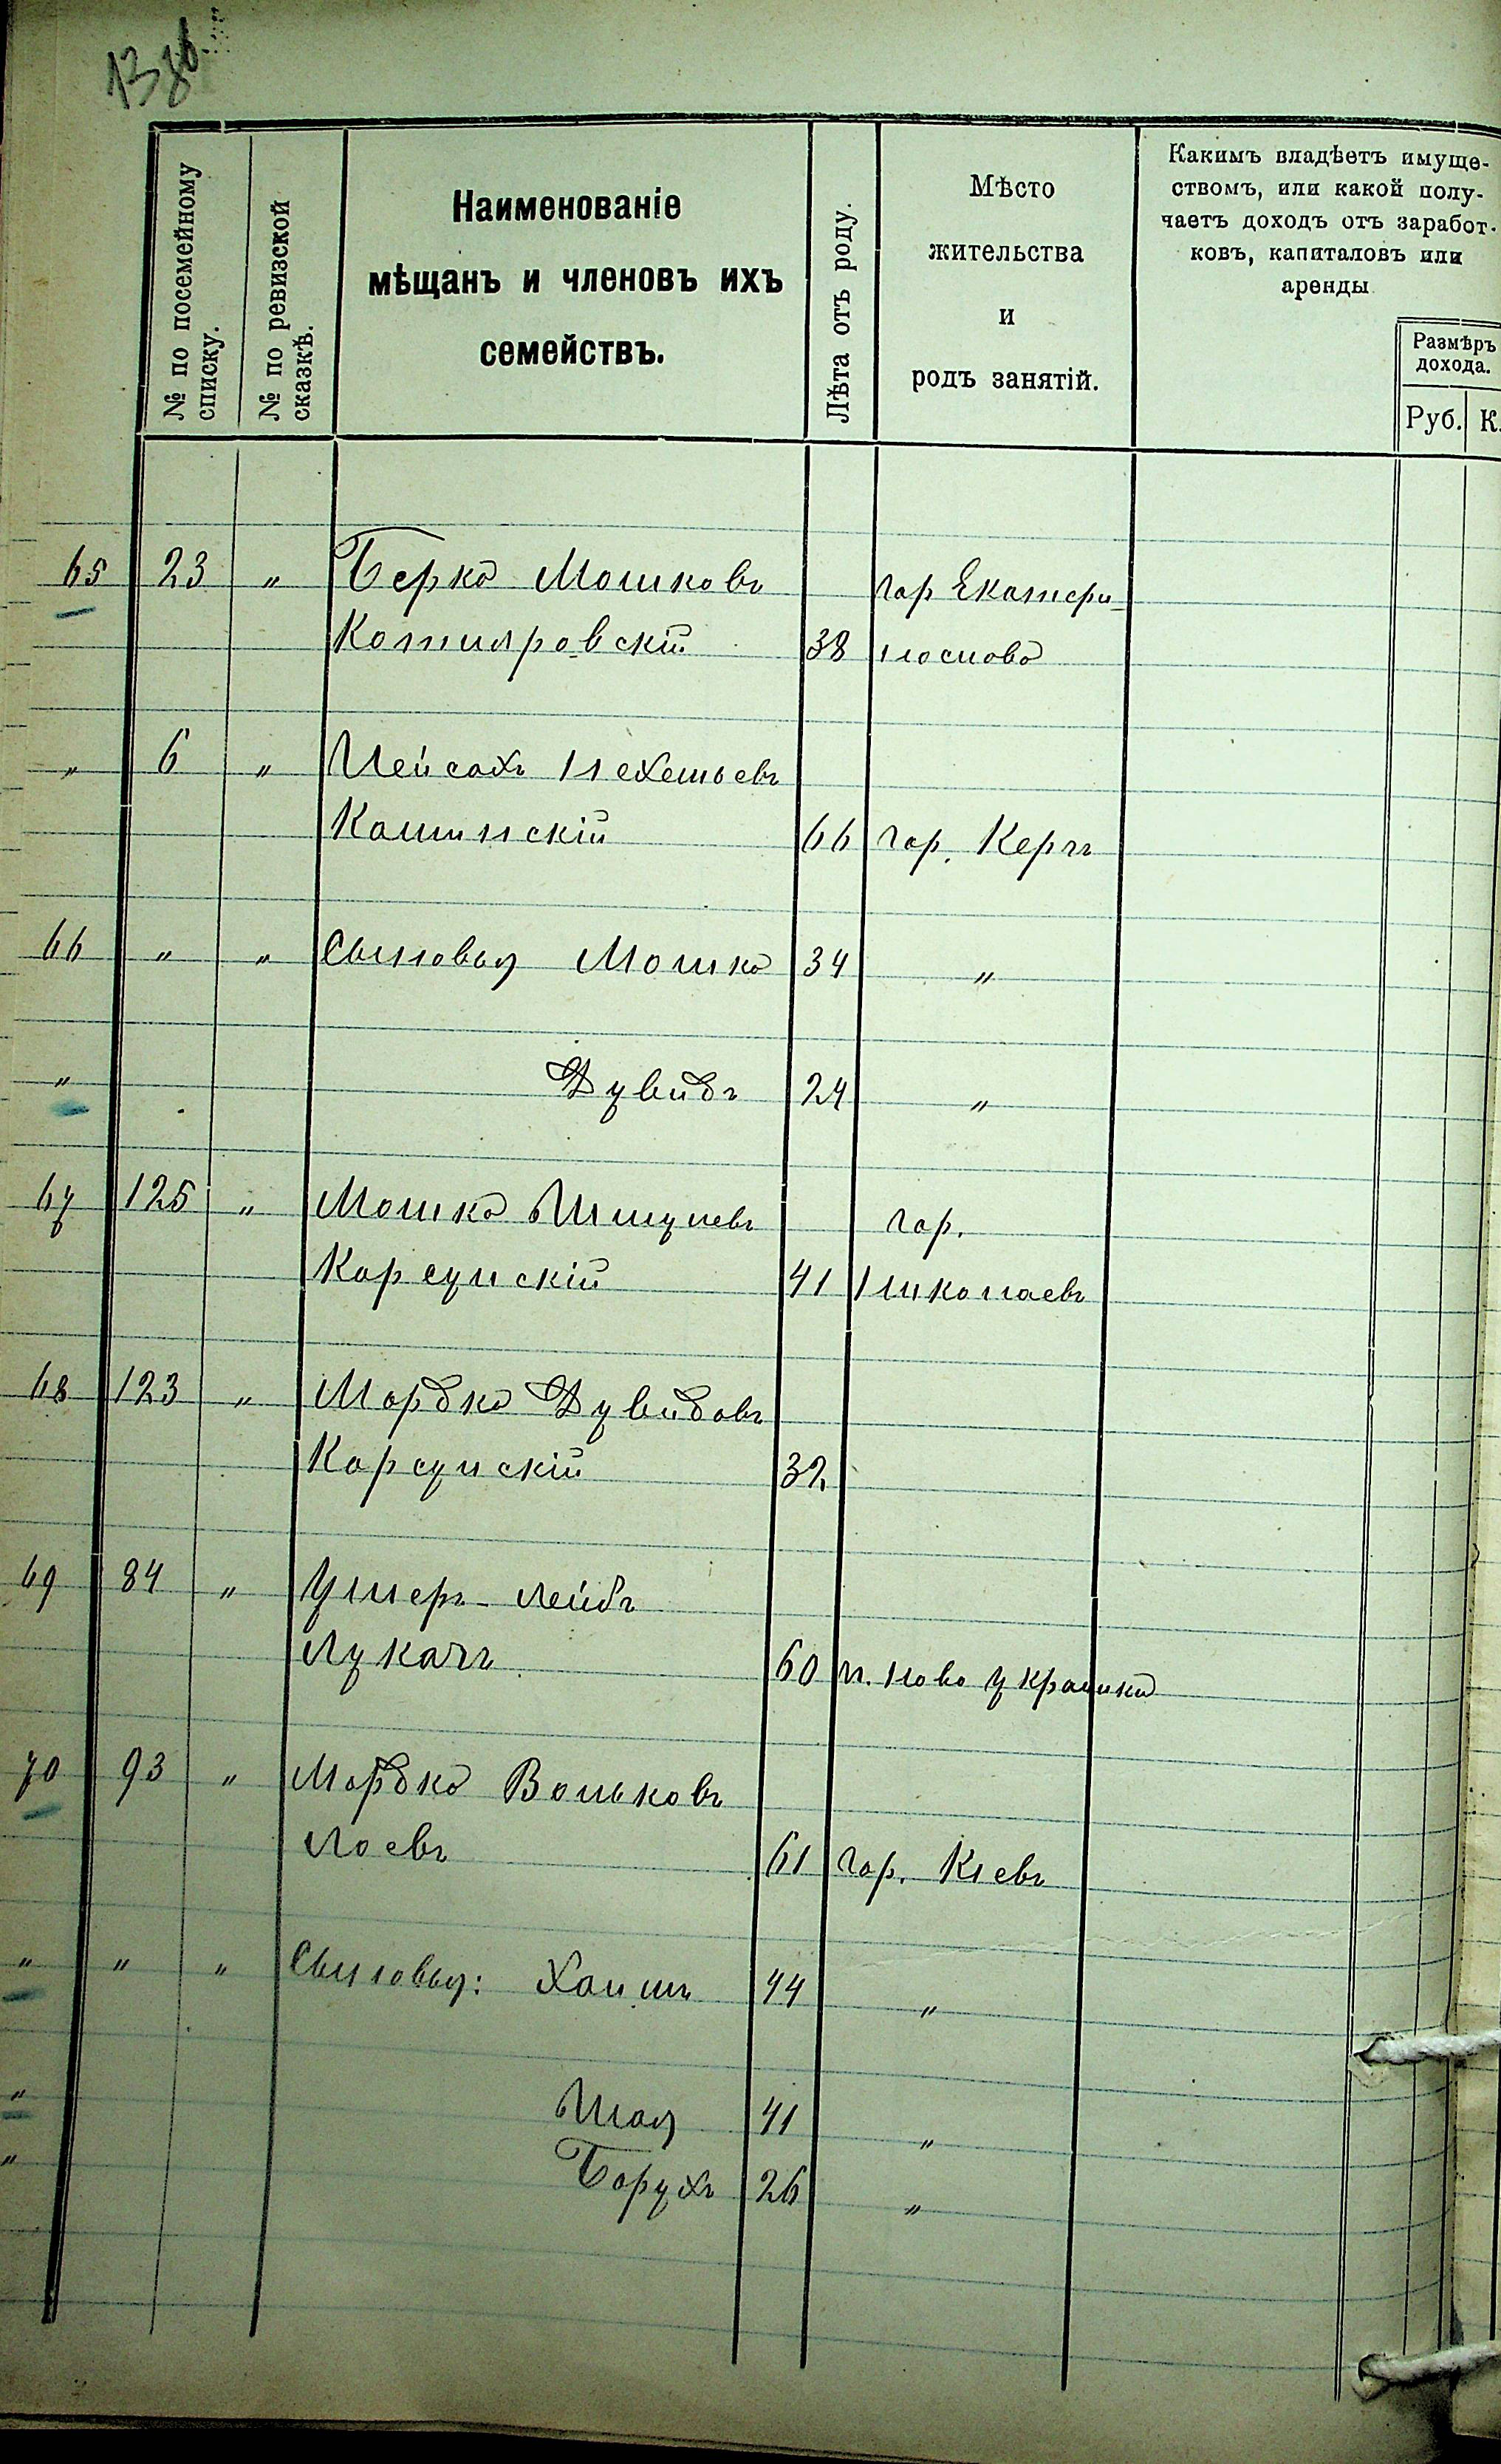 13 зв.
№ по посемейному списку.
№ по ревизской сказкѣ.
Наименованіе
мѣщанъ и членовъ ихъ
семействъ.
Лѣта отъ роду.
Мѣсто
жительства
и
родъ занятій.
Какимъ владѣетъ имуще-
ствомъ, или какой полу-
чаетъ доходъ отъ заработ-
ковъ, капиталовъ или
аренды
Размѣръ
дохода.
Руб. К.
65 23 " Берко Мошковъ гор Екатери-
Котляровскій 38 нославъ
" 6 " Пейсахъ Нехемьевъ
Каминскій 66 гор. Керчъ
66 " " Сыновья Мошко 34 "
" Дувидъ 24 "
67 125 " Мошко гор.
Корсунскій 41 Николаевъ
68 123 " Мордко Дувидовъ
Корсунскій 32
69 84 " Ушеръ-Лейбъ
Лукачъ 60 м. Ново Украинка
70 93 " Мордко Вольковъ
Лоевъ 61 гор. Кіевъ
" " " Сыновья: Хаимъ 44 "
" Шая 41 "
" Борухъ 26 "